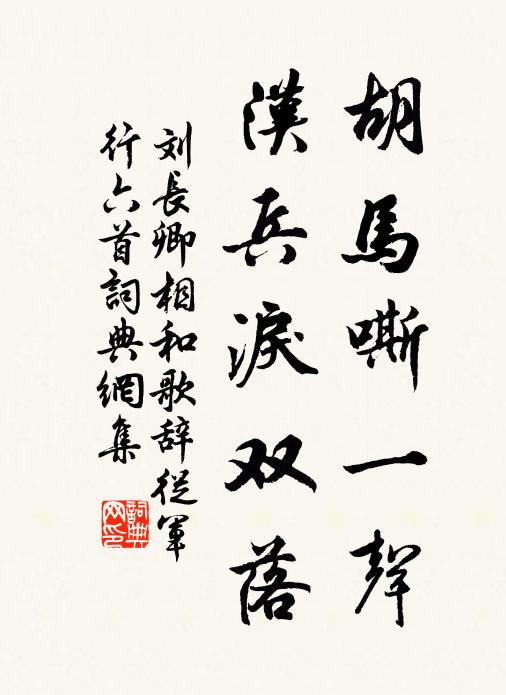 胡馬嘶一聲
漢兵淚双落
刘長卿相和歌辞從軍
行六首詞典網集
詞典
网印